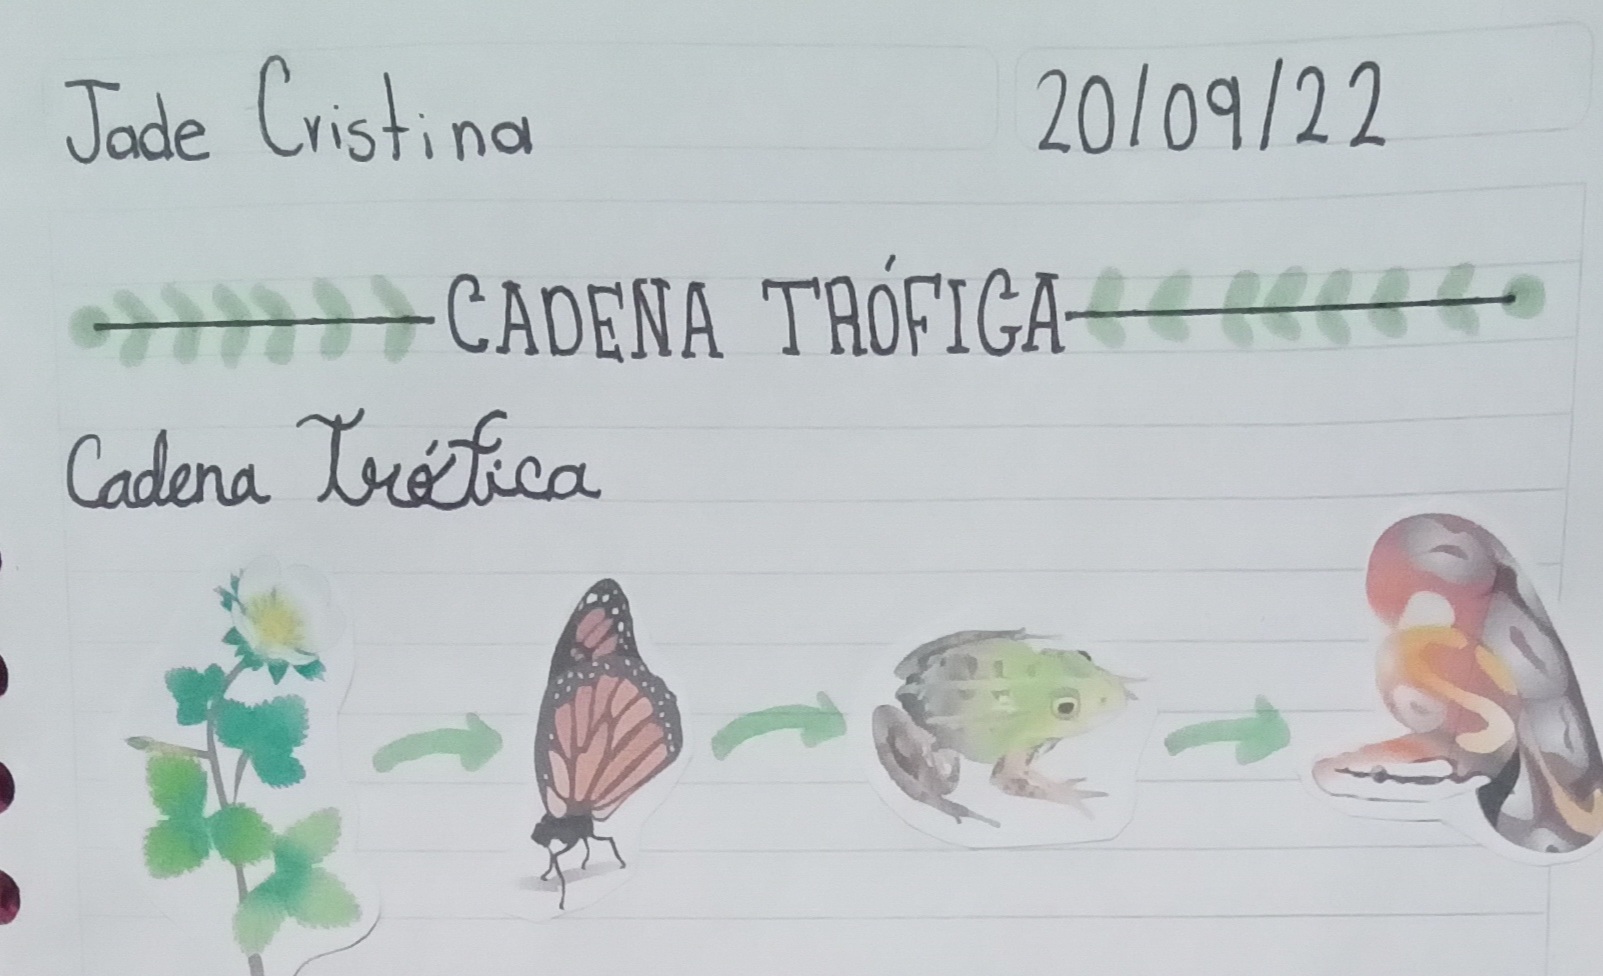 Jade Cristina 20/09/22
CADENA TRÓFICA
Cadena Trófica